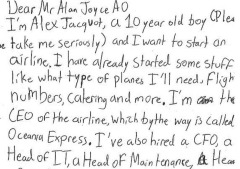 Dear Mr Alan Joyce AO
I'm Alex Jacquot, a 10 year old boy (Plea
e take me seriously) and I want to start an
airline. I have already started some stuff
like what type of planes I'll need. Fligh
numbers, catering and more. I'm the
CEO of the airline, which by the way is called
Oceania Express. I've also hired a CFO, a
Head of IT, a Head of Maintenance, A Hea